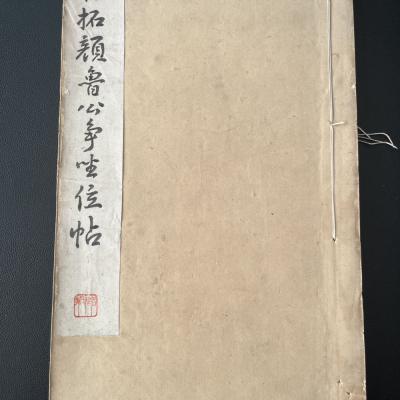 拓顏魯公爭坐位帖